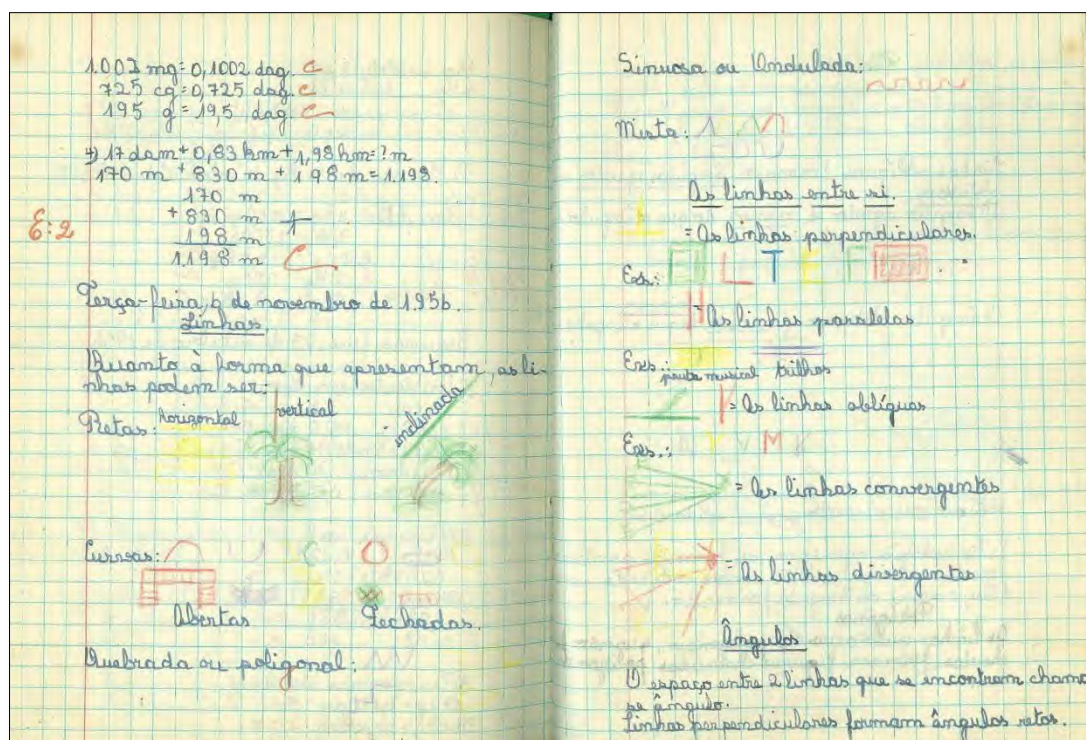 1.002 mg = 0,1002 dag. C
725 cg = 0,725 dag. C
195 g = 19,5 dag. C
4) 17 dam + 0,83 km + 1,98 hm = ? m
170 m + 830 m + 198 m = 1.198.
170 m
+ 830 m
198 m
1198 m C
E: 2
Terça-feira, 6 de novembro de 1956.
Linhas.
Quanto à forma que apresentam, as li-
nhas podem ser:
Retas: horizontal vertical inclinada
Curvas:
Abertas Fechadas.
Quebrada ou poligonal:
Sinuosa ou Ondulada:
Mista:
As linhas entre si.
= As linhas perpendiculares.
Exs.: L T E F
= As linhas paralelas
Exs.: pauta musical trilhos
= As linhas oblíquas
Exs.: V M
= As linhas convergentes
= As linhas divergentes
Ângulos
O espaço entre 2 linhas que se encontram chama
se ângulo.
Linhas perpendiculares formam ângulos retos.